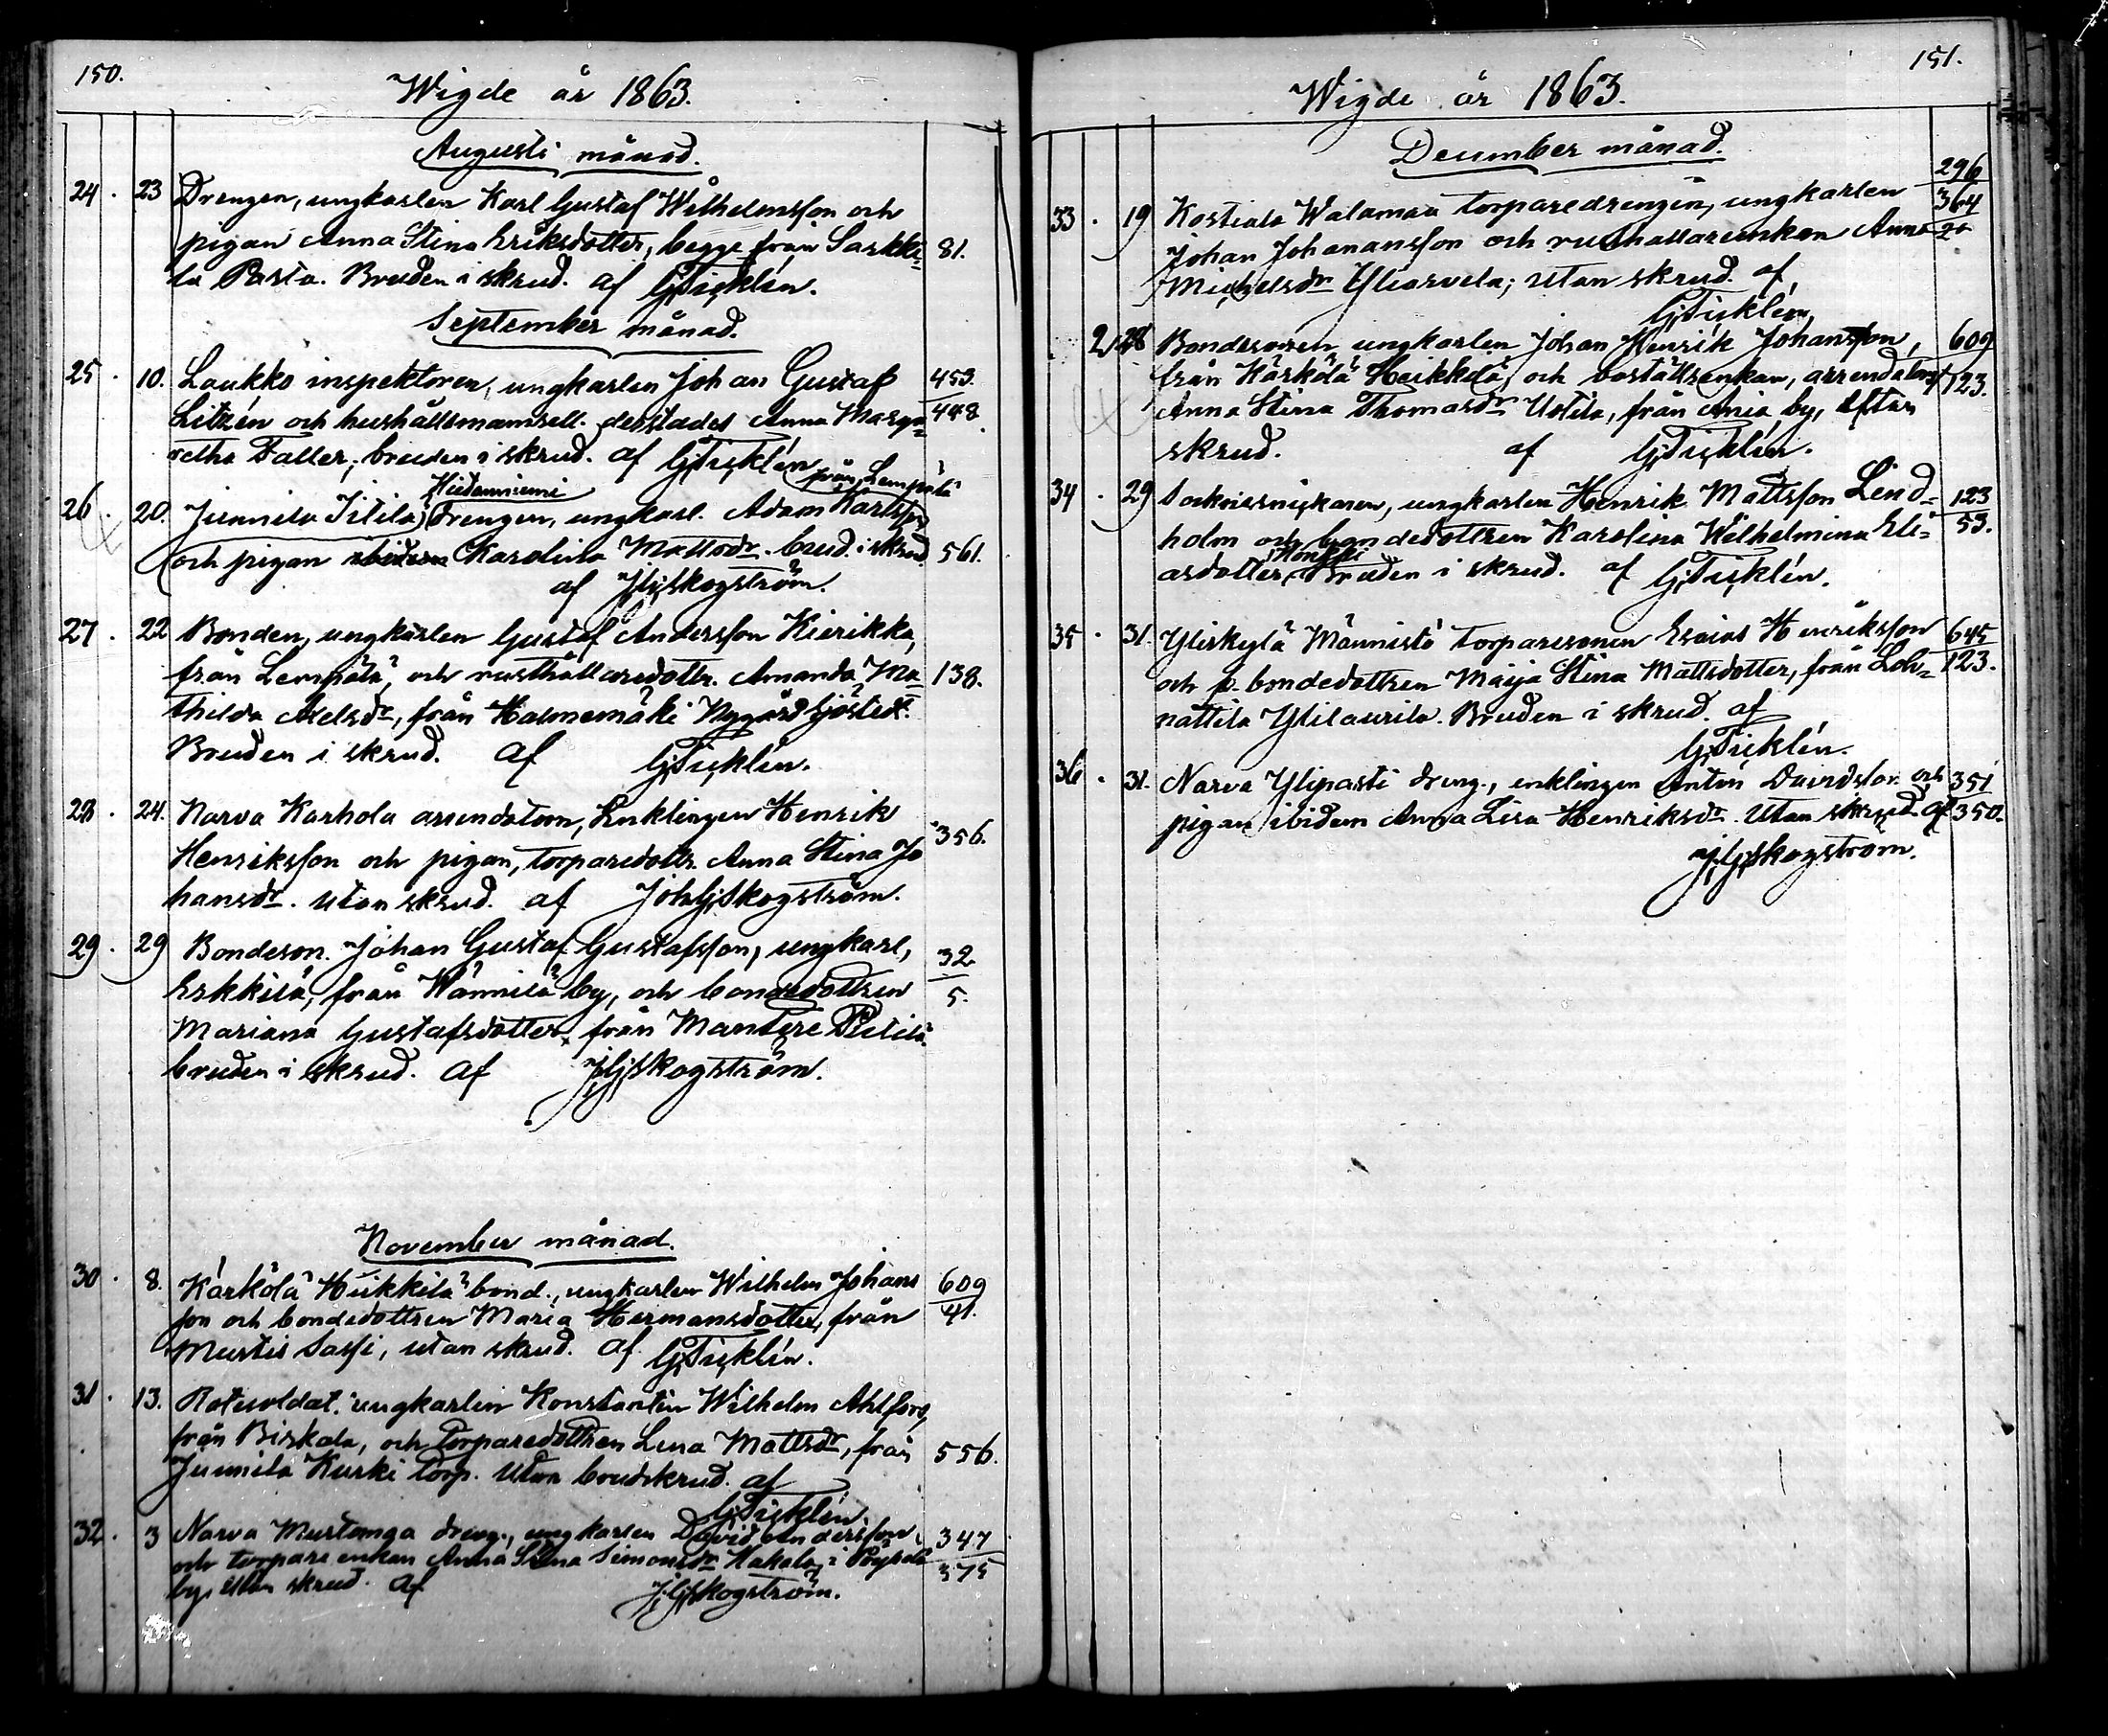 150.
Wigde år 1863.
Augusti månad.
24. 23 Drengen, ungkarlen Karl Gustaf Wilhelmsson och
pigan Anna Stina Eriksdotter, begge från Sarkki- 81.
la Pasta. Bruden i skrud. af G, Ticklén.
September månad.
25. 10. Laukko inspektoren, ungkarlen Johan Gustaf 453.
Litzén och hushållsmamsell. derstädes Anna Marga= 448.
retha Faller, bruden i skrud. af G, Ticklén
från Lempälä
Hiidenniemi
26. 20. Junnila Iilila, Drengen, ungkarl. Adam Karlsson
och pigan Karolina Mattsdr. brud. i skrud 561.
af J, G, Skogström.
27. 22 Bonden, ungkarlen Gustaf Andersson Kierikka,
från Lempälä, och rusthållaredottr. Amanda Ma= 138.
thilda Axelsdr, från Halmemäki Nygård Sjöstedt.
Bruden i skrud. af G, Ticklén.
28. 24. Narva Karhola arrendatorn, Enklingen Henrik
Henriksson och pigan, torparedottr. Anna Stina Jo 356.
hansdr. utan skrud. af Joh, G, Skogström.
29. 29 Bondeson. Johan Gustaf Gustafsson, ungkarl, 32
Erkkilä, från Wännilä by, och bondedottren 5.
Mariana Gustafsdotter, från Mantere Pietilä
bruden i skrud. af J, G, Skogström.
November månad.
30. 8. Kärkölä Heikkilä bond., ungkarlen Wilhelm Johans 609
son och bondedottren Maria Hermansdotter, från 41.
Murtis Sassi, utan skrud. af G, Ticklén.
31. 13. Rotesoldat. ungkarlen Konstantin Wilhelm Ahlfors,
från Birkala, och torparedottren Lena Mattsdr, från 556.
Junnila Kurki torp. Utan brudskrud. af
G, Ticklén.
32. 3 Narva Mustanga dreng., ungkarlen David Andersson 347
och torpare enkan Anna Stina Simonsdr Hakala, i Pöyhölä 375
by, utan skrud. af J, G, Skogström.
151.
Wigde år 1863.
December månad.
296
33. 19 Kostiala Walamaa torparedrengen, ungkarlen 364
Johan Johanansson och rusthållareenkan Anna 20
Michelsdr Yliarvela; utan skrud. af
G, Ticklén,
28 Bondesonen ungkarlen Johan Henrik Johansson, 609
från Kärkölä Heikkilä, och boställsenkan, 123.
Anna Stina Thomasdr Uotila, från Ania by, Utan
skrud. af G, Ticklén.
34. 29 Socknesnickaren, ungkarlen Henrik Mattsson Lind= 123
holm och bondedottren Karolina Wilhelmina Eli= 53.
Honkki
asdotter, Bruden i skrud. af G, Ticklén.
35. 31. Yliskylä Männistö torparesonen Esaias Henriksson 645
och p. bondedottren Maija Stina Mattsdotter, från Leh= 123.
nattila Ylilaurila. Bruden i skrud. af
G, Ticklén.
36. 31. Narva Ylipasti dreng., enklingen Anton Davidsson och 351
pigan ibidem Anna Lisa Henriksdr. Utan skrud. af 350.
J, G, Skogström.